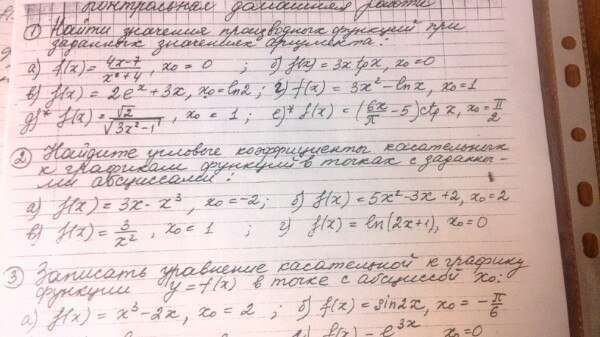 контрольная домашняя работа
① Найти значения производных функций при
заданных значениях аргумента:
а) f(x) = \frac{4x-7}{x²+4}, x₀ = 0 ; б) f(x) = 3x tgx, x₀ = 0
в) f(x) = 2eˣ + 3x, x₀ = ln2 ; г) f(x) = 3x² - lnx, x₀ = 1
д)* f(x) = \frac{√2}{\sqrt{3x²-1}}, x₀ = 1 ; е)* f(x) = (\frac{6x}{π} - 5) ctg x, x₀ = \frac{π}{2}
② Найдите угловые коэффициенты касательных
к графикам функций в точках с заданны-
ми абсциссами:
а) f(x) = 3x - x³, x₀ = -2 ; б) f(x) = 5x² - 3x + 2, x₀ = 2
в) f(x) = \frac{3}{x²}, x₀ = 1 ; г) f(x) = ln(2x+1), x₀ = 0
③ Записать уравнение касательной к графику
функции y = f(x) в точке с абсциссой x₀:
а) f(x) = x³ - 2x, x₀ = 2 ; б) f(x) = sin2x, x₀ = -\frac{π}{6}
f(x) = e³ˣ x₀ = 0